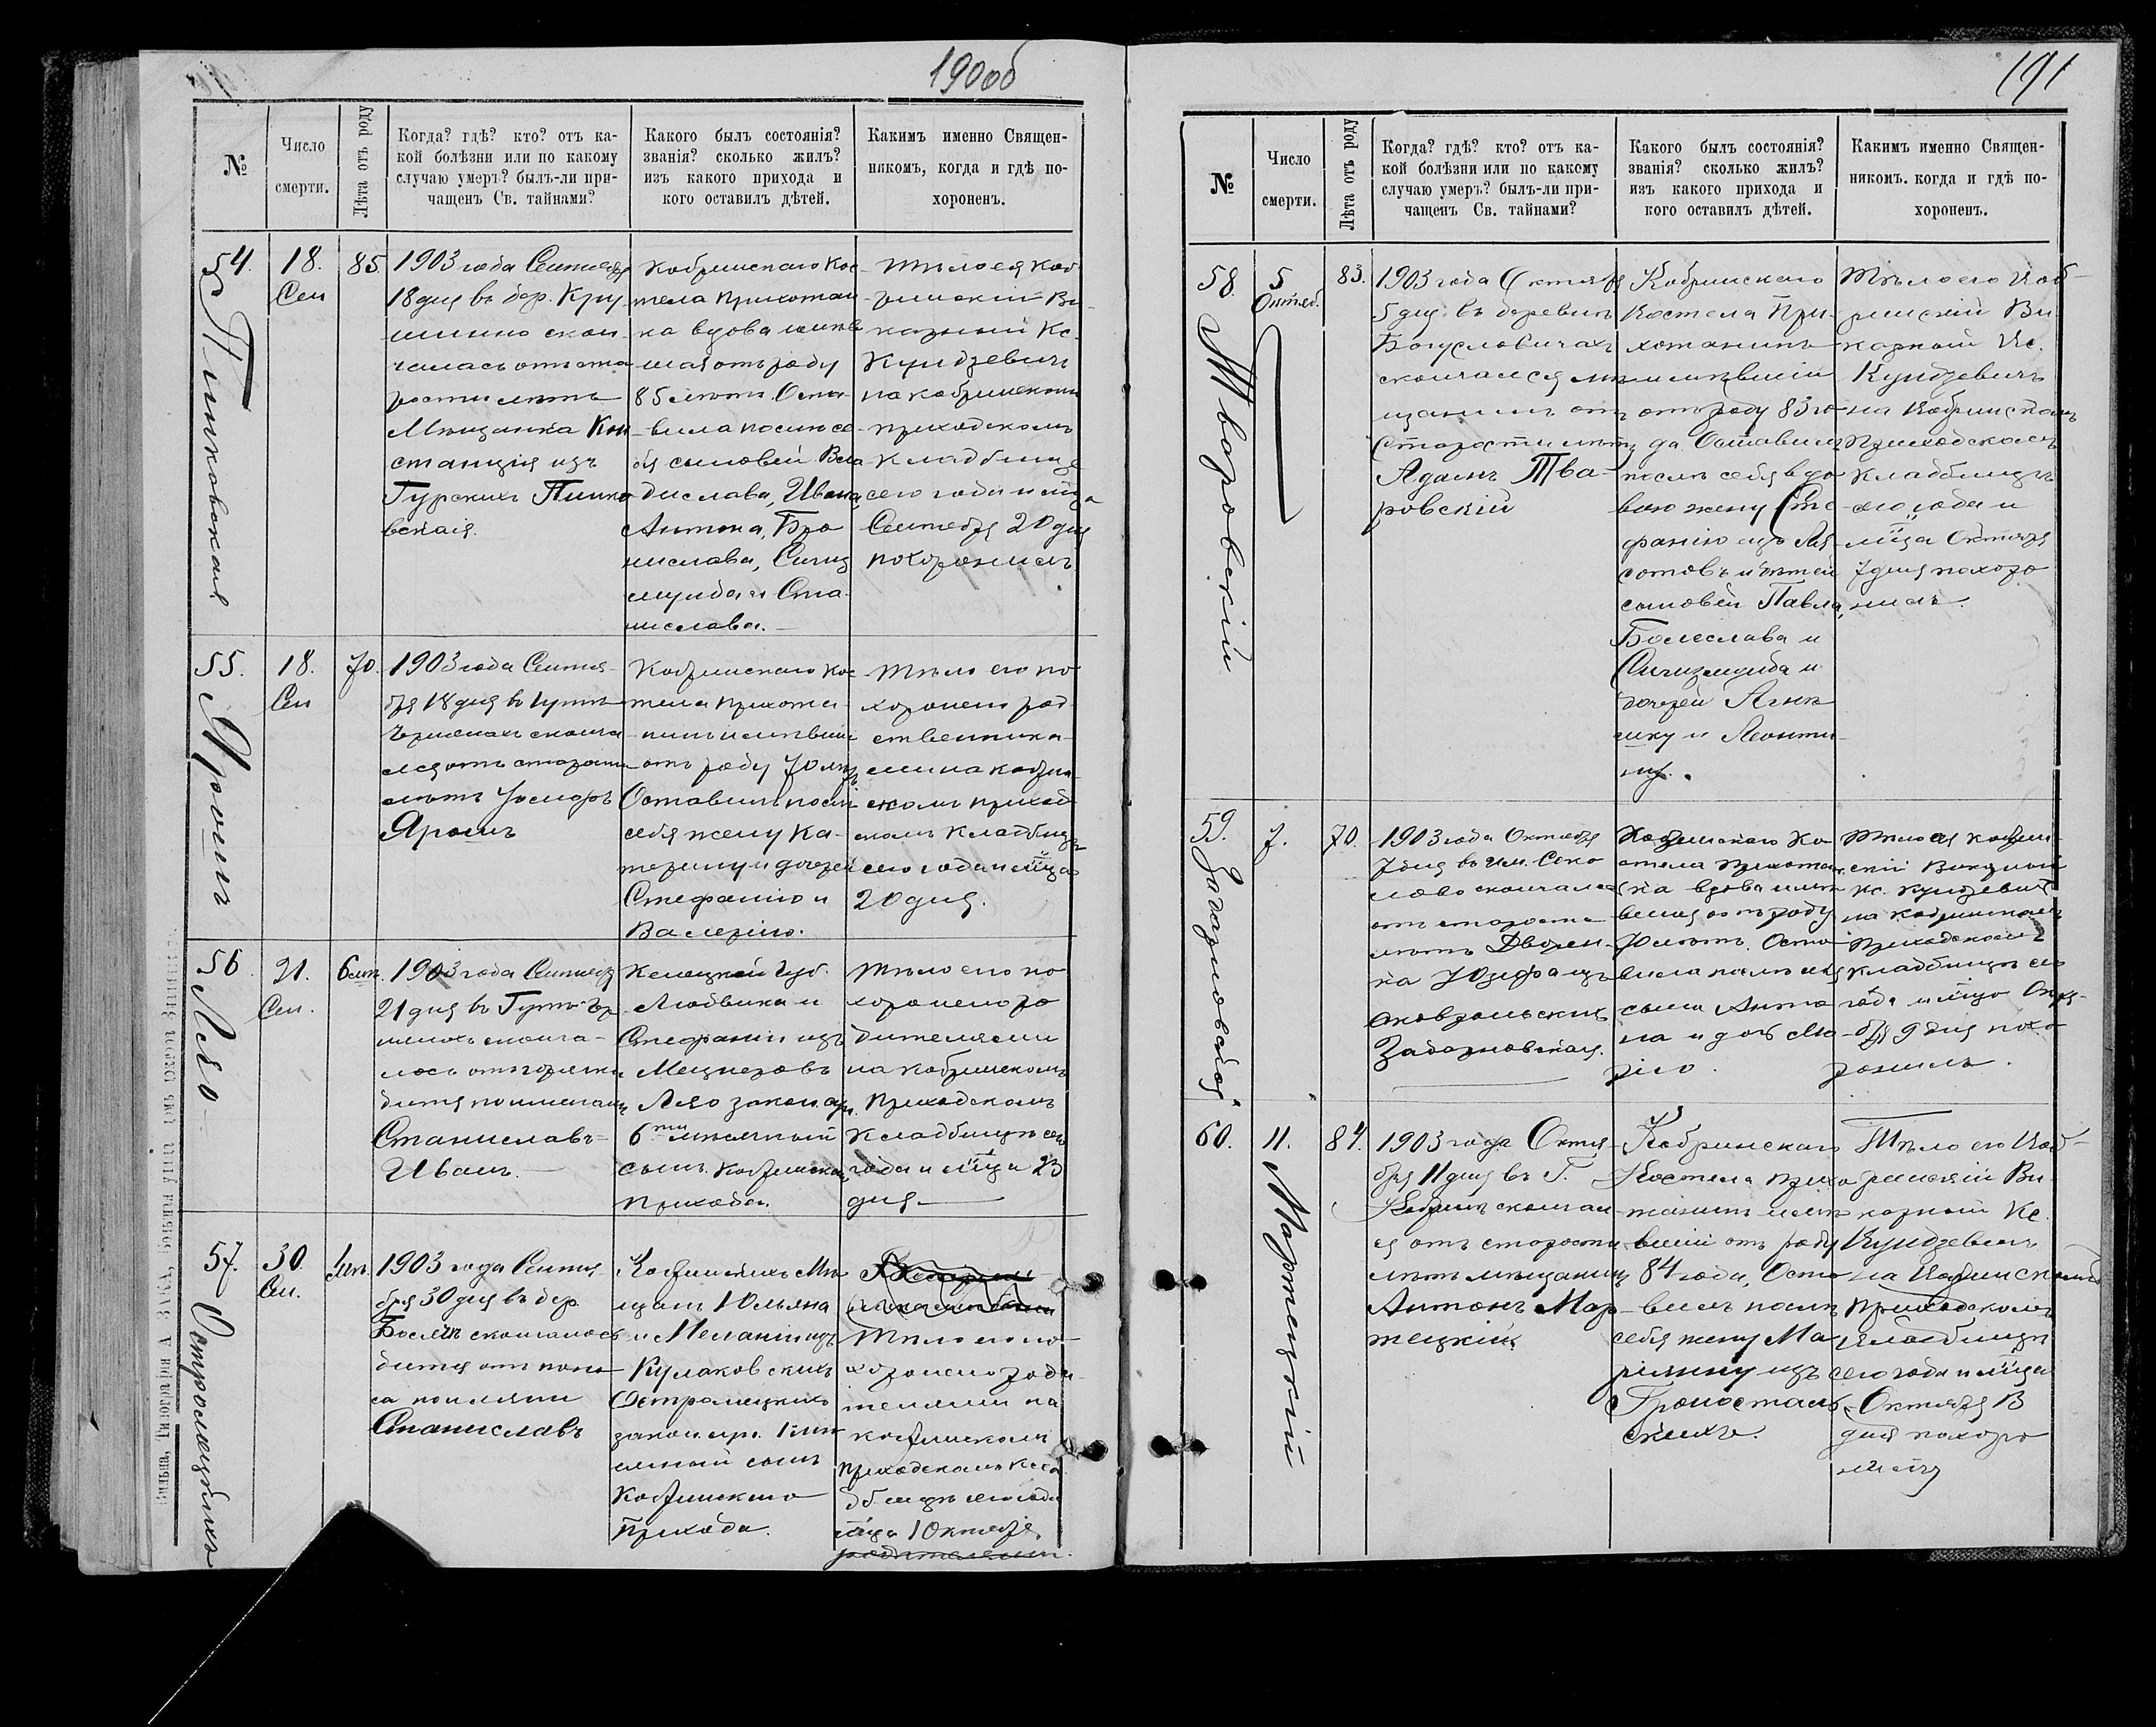 190об
№
Число
смерти.
Лѣта отъ роду
Когда? гдѣ? кто? отъ ка-
кой болѣзни или по какому
случаю умеръ? былъ-ли при-
чащенъ Св. тайнами?
Какого былъ состоянія?
званія? сколько жилъ?
изъ какого прихода и
кого оставилъ дѣтей.
Каким именно Священ-
никомъ, когда и гдѣ по-
хороненъ.
54.
Пинковская
18.
Сен
85.
1903 года Сентябр
18 дня въ дер.
скон
чалась отъ ста
рости лѣтъ
Мѣщанка Кон
станція изъ
Гурскихъ Пинко
вская.
Кобринскаго Кос
тела прихожан
ка вдова имѣв
шая отъ роду
85 лѣтъ. Оста
вила послѣ се
бя сыновей Вла
дислава, Ивана,
Антона, Бро
нислава, Сигиз
мунда и Ста
нислава.
Тѣло ея Коб
ринскій Ви
карный Кс.
Кундзевичъ
на Кобринскомъ
приходскомъ
кладбищѣ
сего года и мѣца
Сентября 20 дня
похоронилъ
55.
Ярошъ
18.
Сен
70.
1903 года Сентя
бря 18 дня въ
сконча
лся отъ старости
лѣтъ
Ярошъ
Кобринскаго Кос
тела прихожа
нинъ имѣвшій
отъ роду 70 лѣтъ
Оставилъ послѣ
себя жену Ка-
терину и дочерей
Стефанію и
Валерію.
Тѣло его по
хоронено род
ственника
ми на Кобрин
скомъ приход
скомъ кладбищѣ
сего года и мѣца
20 дня.
56.
Ляо
21.
Сен.
6 мѣс.
1903 года Сентябр
21 дня въ
сконча-
лось отъ горячки
дитя по имени
Станиславъ-
Иванъ.
Келецкой Губ.
Людвика и
Стефаніи изъ
Ляо закон. супр.
6ти мѣсячный
сынъ Кобринскаго
прихода.
Тѣло его по
хоронено ро
дителями
на Кобринскомъ
приходскомъ
кладбищѣ сего
года и мѣца 23
дня
57.
Остромецкихъ
30.
Сен.
1903 года Сентя
бря 30 дня въ дер.
скончалось
дитя отъ поно
са по имени
Станиславъ
Кобринскихъ Мѣ
щанъ Юльяна
и Меланіи изъ
Кулаковскихъ
Остромецкихъ
закон. супр. 1 мѣ
сячный сынъ
Кобринскаго
прихода.
Тѣло его по-
хоронено роди
телями на
Кобринскомъ
приходскомъ кла
дбищѣ сего года
мѣца 1 Октября
родителями.
191
№
Число
смерти.
Лѣта отъ роду
Когда? гдѣ? кто? отъ ка-
кой болѣзни или по какому
случаю умеръ? былъ-ли при-
чащенъ Св. тайнами?
Какого былъ состоянія?
званія? сколько жилъ?
изъ какого прихода и
кого оставилъ дѣтей.
Каким именно Священ-
никомъ. когда и гдѣ по-
хороненъ.
58.
Творовскій
5
Октяб.
83.
1903 года Октября
5 дня въ деревнѣ
Богусловичахъ
скончался мѣ
щанинъ отъ
старости лѣтъ
Адамъ Тва-
ровскій
Кобринскаго
Костела При-
хожанинъ
имѣвшій
отъ роду 83 го
да. Оставилъ
послѣ себя вдо
вою жену Сте
фанію изъ
и дѣтей
сыновей Павла,
Болеслава и
Сигизмунда и
дочерей
и Леонти
ну.
Тѣло его Коб-
ринскій Ви
карный Кс.
Кундзевичъ
на Кобринскомъ
Приходскомъ
кладбищѣ
сего года и
мѣца Октября
7 дня похоро
нилъ.
59.
7.
70.
1903 года Октября
7 дня въ им.
скончалась
отъ старости
лѣтъ Дворян-
ка Юзефа изъ
Кобринскаго Ко
стела прихожан
ка вдова имѣ
вшая отъ роду
70 лѣтъ. Оста
вила послѣ себя
сына Анто
на и дочь Ма
рію.
Тѣло ея Кобрин
скій Викарный
Кс. Кундзевичъ
на Кобринскомъ
Приходскомъ
кладбищѣ сего
года и мѣца Октя-
бря 9 дня похо
ронилъ.
60.
Мартецкій
11.
84.
1903 года Октя
бря 11 дня въ Г.
Кобринѣ скончал
ся отъ старости
лѣтъ мѣщанинъ
Антонъ Мар
тецкій.
Кобринскаго
Костела прихо
жанинъ имѣ
вшій отъ роду
84 года, Оста
вилъ послѣ
себя жену Ма
ріянну изъ
Гроностаев
скихъ.
Тѣло его Коб-
ринскій Ви
карный Кс.
Кундзевичъ
на Кобринскомъ
приходскомъ
кладбищѣ
сего года и мѣца
Октября 13
дня похоро
нилъ